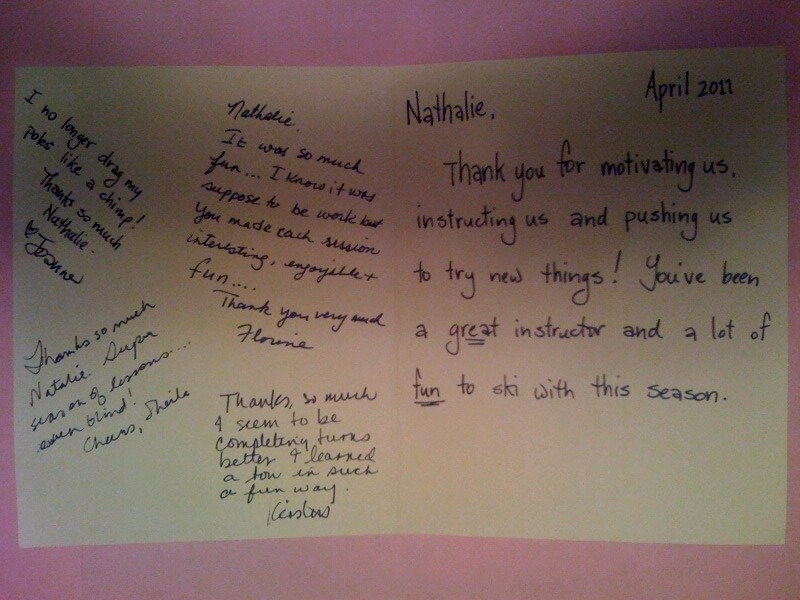 I no longer drag my
poles like a chimp!
Thanks so much
Nathalie.
Joanne
Thanks so much
Natalie. Super
season of lessons...
even blind!
Cheers, Sheila
Nathalie.
It was so much
fun... I know it was
suppose to be work but
you made each session
interesting, enjoyable +
fun....
Thank you very much
Florine
Thanks, so much
I seem to be
completing turns
better & learned
a ton in such
a fun way.
April 2011
Nathalie,
Thank you for motivating us,
instructing us and pushing us
to try new things! You've been
a great instructor and a lot of
fun to ski with this season.